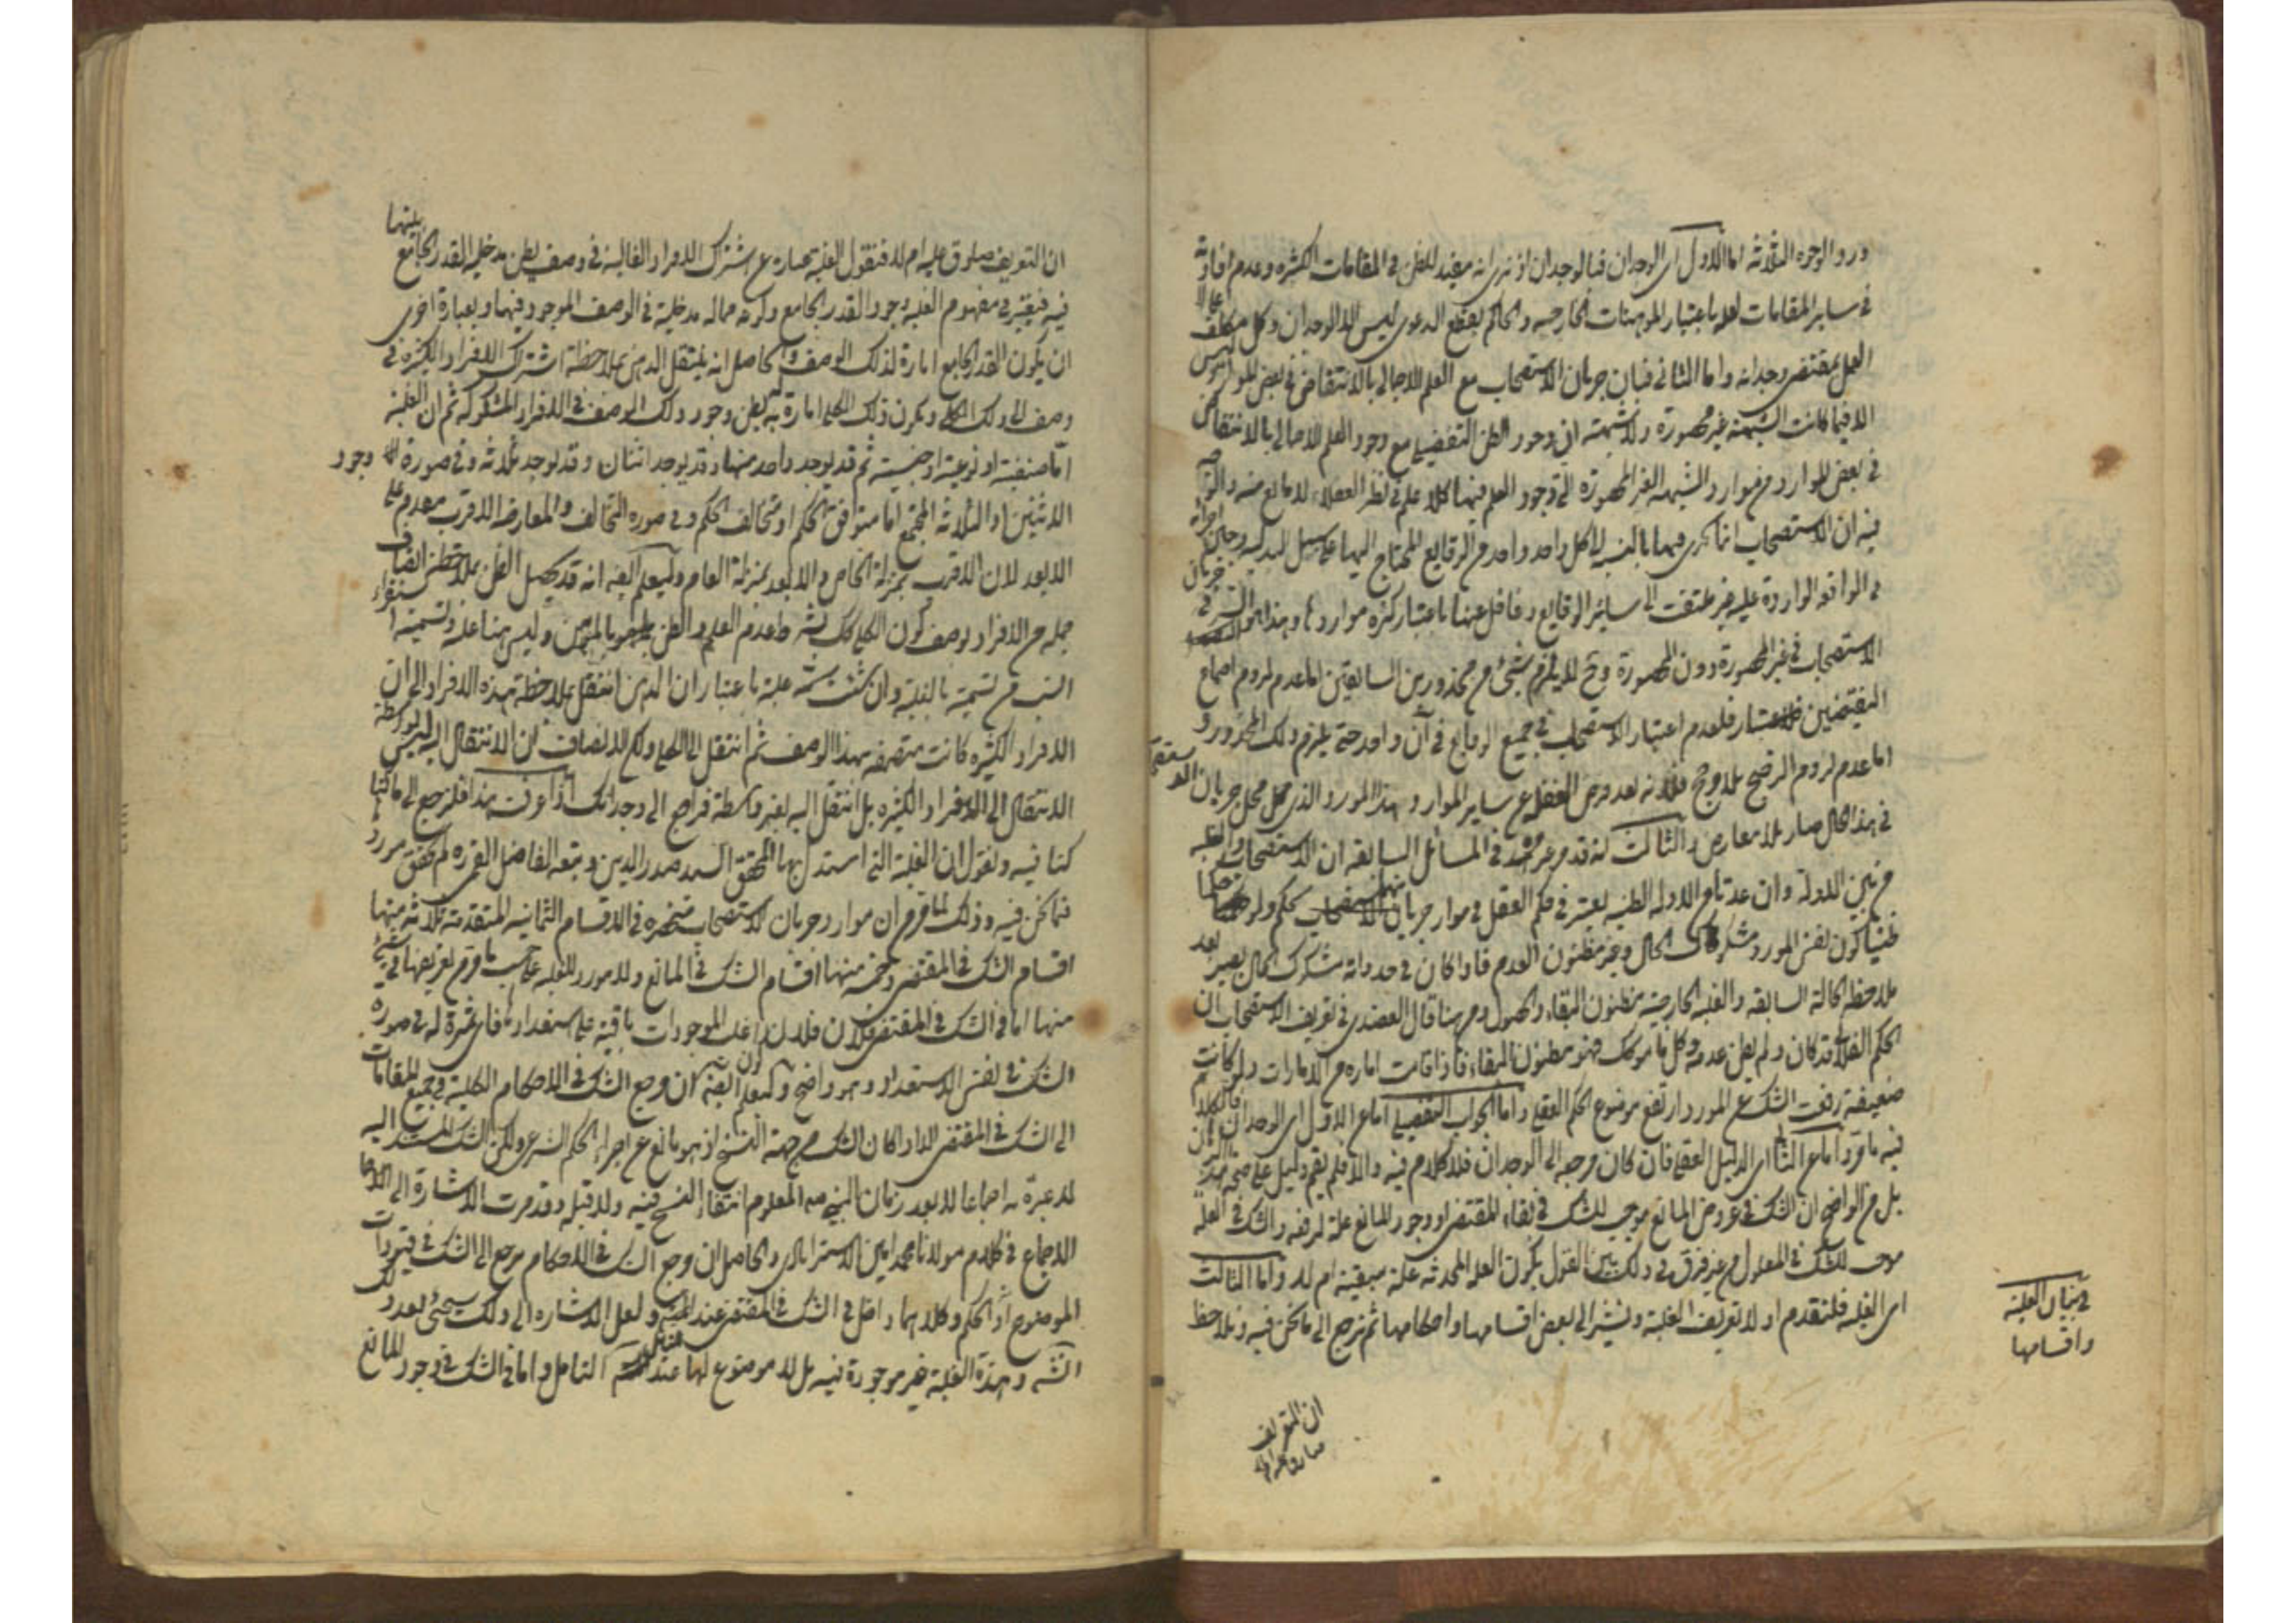 ورد الوجوه الثلاثه اما الاول اى الوجدان فبالوجدان اذ نرى انه مفيد للظن فى المقامات الكثيره وعدم افادته
فى ساير المقامات لعله باعتبار الموهنات الخارجيه والحاكم بقطع الدعوى ليس الا الوجدان وكل مكلف على
العمل بمقتضى وجدانه واما الثانى فبان جريان الاستصحاب مع العلم الاجمالى بالانتقاض فى بعض الموارد ليس
الا فيما كانت الشبهة غير محصورة ولا شبهة ان وجود الظن التفصيلى مع وجود العلم الاجمالى بالانتقاض
فى بعض الموارد من موارد الشبهه الغير المحصوره التى وجود العلم فيها كلا علم فى نظر العقلاء لا مانع منه والوجه
فيه ان الاستصحاب انما يجرى فيها بالنسبة الى كل واحد واحد من الوقايع المحتاج اليها على سبيل البدليه وحال اجرائه
فى الواقعه الواردة عليه غير ملتفت الى ساير الوقايع وغافل عنها باعتبار كثره مواردها وهذا هو السر فى جريان
الاستصحاب فى غير المحصورة دون المحصورة وح لا يلزم شىء من محذورين السابقين اما عدم لزوم اجتماع
النقيضين فلعدم اعتبار الاستصحاب فى جميع الوقايع فى آن واحد حتى يلزم ذلك المحذور و
اما عدم لزوم الترجيح بلا مرجح فلانه بعد فرض الغفله عن ساير الموارد وهذا المورد الذى محل جريان الاستصحاب
فى هذا الحال صار بلا معارض والثالث انه قد مر غير مره فى المسائل السابقه ان الاستصحاب والغلبه
من بين الادلة وان عدتا من الادله الظنيه يعتبر فى حكم العقل فى موارد جريانهما
ظنيا كون نفس المورد مشكوك الحال وغير مظنون العدم فاذا كان فى حد ذاته مشكوك الحال يصير بعد
ملاحظه الحالة السابقه والغلبه الخارجيه مظنون البقاء والحصول ومن هنا قال العضدى فى تعريف الاستصحاب ان
الحكم الفلانى قد كان ولم يظن عدمه وكل ما هو كك فهو مظنون البقاء فاذا قامت اماره من الامارات ولو كانت
ضعيفة رفعت الشك عن المورد ارتفع موضوع الحكم العقلى واما الجواب التفصيلى اما عن الاول اى الوجدان فالكلام
فيه ما مر واما عن الثانى اى الدليل العقلى فان كان مرجعه الى الوجدان فلا كلام فيه والا فلم يقم دليل على صحة هذا البرهان
بل من الواضح ان الشك فى عروض المانع موجب للشك فى بقاء المقتضى او وجود المانع علة لرفعه والشك فى العلة
موجب للشك فى المعلول من غير فرق فى ذلك بين القول بكون العلة المحدثه علة مبقية ام لا واما الثالث
اى الغلبه فلنقدم اولا تعريف الغلبة ونشير الى بعض اقسامها واحكامها ثم نرجع الى ما نحن فيه ونلاحظ
فى بيان الغلبة
واقسامها
ان التعريف
صادق عليه ام لا
ان التعريف صادق عليه ام لا فنقول الغلبة عباره عن اشتراك الافراد الغالبة فى وصف يظن مدخلية القدر الجامع بينها
فيه فيعتبر فى مفهوم الغلبة وجود القدر الجامع وكونه مما له مدخلية فى الوصف الموجود فيها وبعبارة اخرى
ان يكون القدر الجامع امارة لذلك الوصف والحاصل انه ينتقل الذهن بملاحظة اشتراك الافراد الكثيره فى
وصف الى ذلك الكلى ويكون ذلك الكلى امارة يظن وجود ذلك الوصف فى الافراد المشكوكه ثم ان الغلبة
اما صنفية او نوعية او جنسية ثم قد يوجد واحد منها وقد يوجد اثنان وقد يوجد ثلاثة وفى صورة وجود
الاثنين او الثلاثه المجتمع اما متوافق الحكم او متخالف الحكم وفى صوره التخالف والمعارضه الاقرب مقدم على
الابعد لان الاقرب بمنزلة الخاص والابعد بمنزلة العام وليعلم ايضا انه قد يحصل الظن بملاحظة اتصاف
جملة من الافراد بوصف كون الكلى كك وليس هنا غلبة وتسميته استقراء
انسب من تسمية بالغلبة وان شئت سمه غلبة باعتبار ان الذهن انتقل بملاحظة هذه الافراد الى ان
الافراد الكثيره كانت متصفه بهذا الوصف ثم انتقل الى الكلى ولكن الانصاف ان الانتقال اليه ليس بواسطة
الانتقال الى الافراد الكثيره بل انتقل اليه بغير واسطة فراجع الى وجدانك اذا عرفت هذا فلنرجع الى ما كنا
كنا فيه ونقول ان الغلبة التى استدل بها المحقق السيد صدر الدين وتبعه الفاضل القمى قده لم يتحقق موردها
فما نحن فيه وذلك لما مر من ان موارد جريان الاستصحاب منحصره فى الاقسام الثمانيه المتقدمة ثلاثة منها
اقسام الشك فى المقتضى وخمسة منها اقسام الشك فى المانع ولا مورد للغلبه على حسب ما مر من تعريفها فى شىء
منها اما فى الشك فى المقتضى فلان غلبه الموجودات باقية على استعدادها فاى ثمرة له فى صوره
الشك فى نفس الاستعداد وهو واضح وليعلم ايضا ان مرجع الشك فى الاحكام الكلية فى جميع المقامات
الى الشك فى المقتضى الا اذا كان الشك من جهة النسخ اذ هو مانع عن اجراء الحكم الشرعى ولكن الشك المستند اليه
لا عبرة به اجماعا لا بعد زمان النبى ص المعلوم انتفاء النسخ فيه ولا قبله وقد مرت الاشارة الى
الاجماع فى كلام مولانا محمد امين الاسترابادى والحاصل ان مرجع الشك فى الاحكام مرجع الى الشك فى قيودات
الموضوع او الحكم وكلاهما داخل فى الشك فى المقتضى ولعل الاشاره الى ذلك سيجئ بعد ذلك
انشه وهذة الغلبة غير موجودة فيه بل لا موضوع لها عند التامل واما فى الشك فى وجود المانع